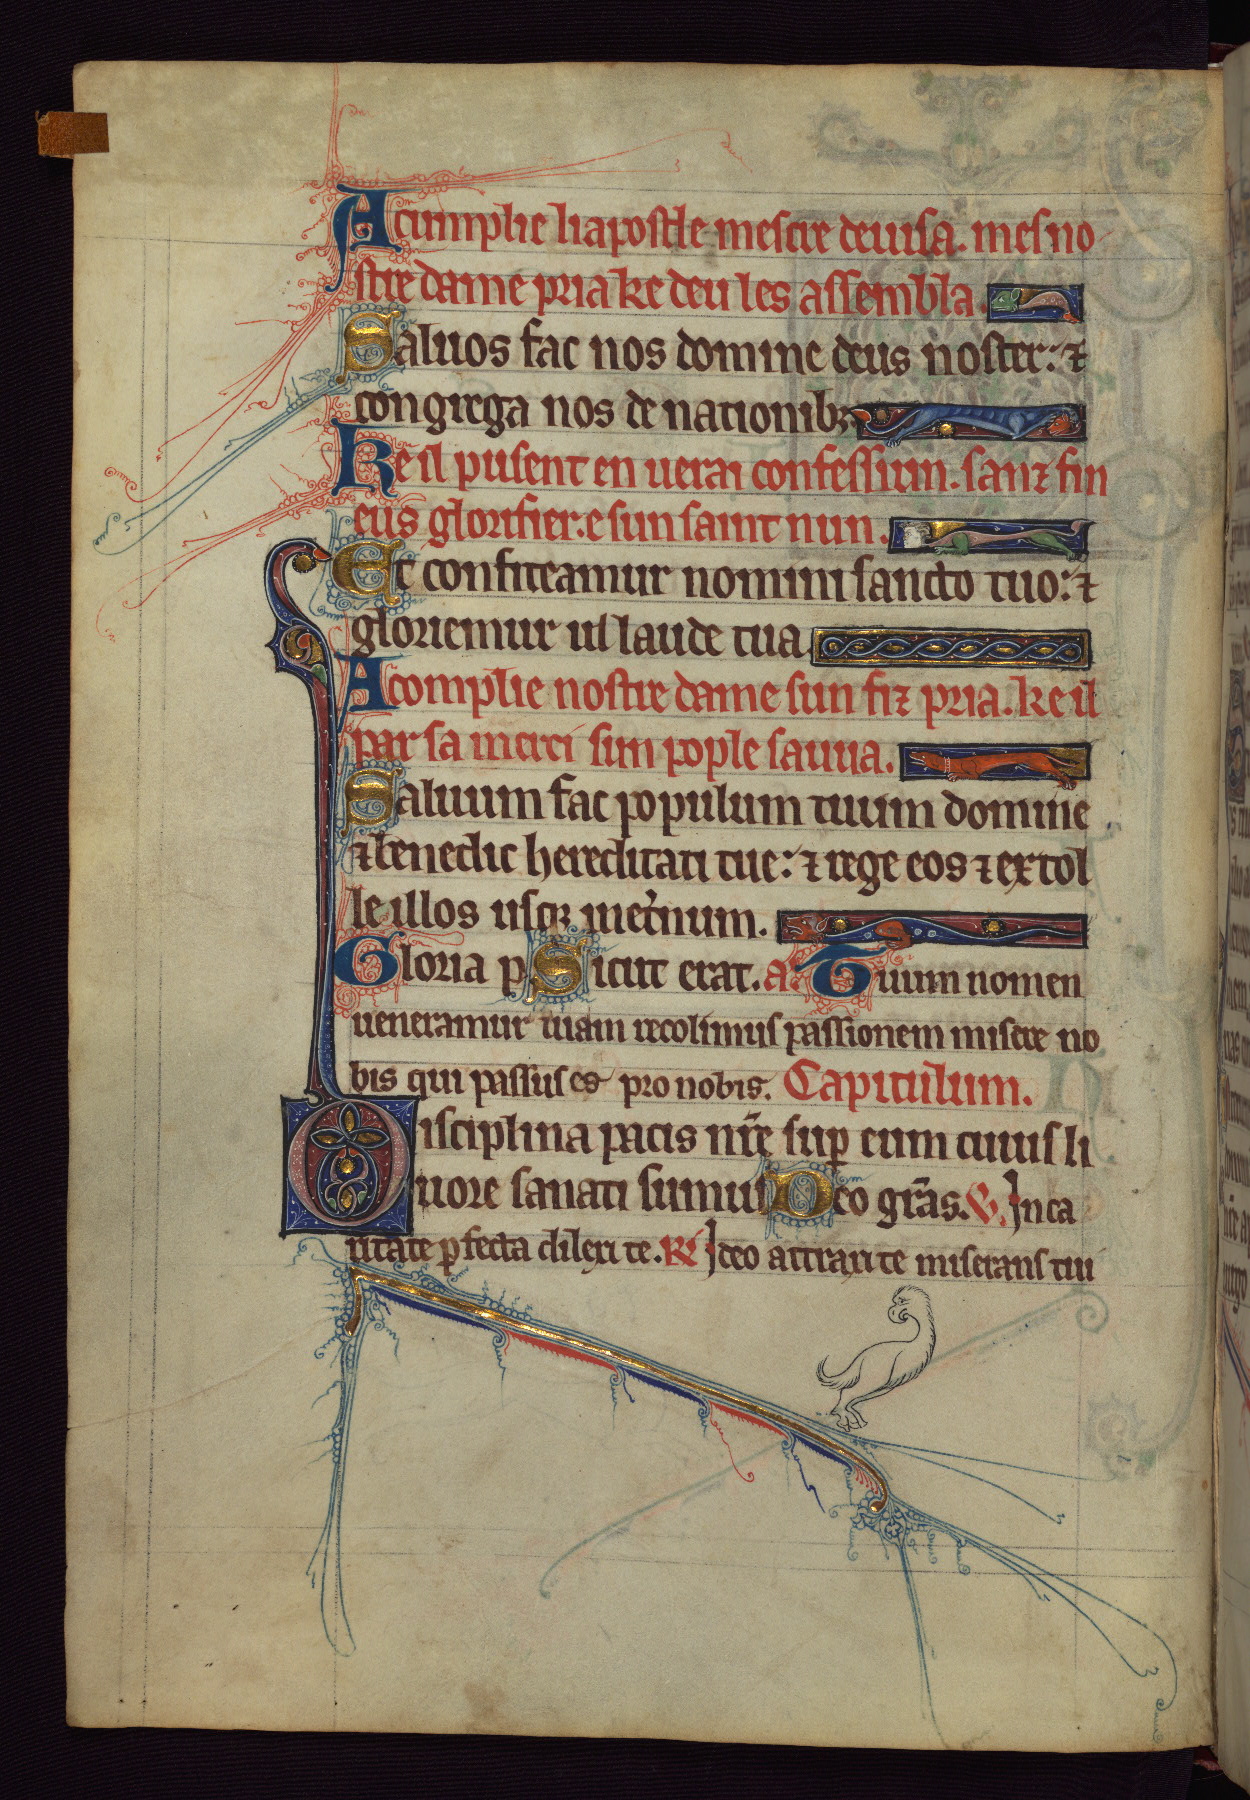 Acumplie li apostle mestre deuisa. mes no
stre dame pria ke deu les assembla
Saluos fac nos domine deus noster: ⁊
congrega nos de nationibꝫ
Ke il pusent en uerai confessiun. sanz fin
eus glorifier. e sun saint nun.
Et confiteamur nomini sancto tuo: ⁊
gloriemur ul laude tua
Acomplie nostre dame sun fiz pria. ke il
par sa merci sun pople sauua.
Saluum fac populum tuum domine
⁊ benedic hereditati tue: ⁊ rege eos ⁊ extol
le illos usqꝫ inet'num.
Gloria p Sicut erat. a Tuum nomen
ueneramur tuam recolimus passionem misere no
bis qui passus es pro nobis. Capitulum.
Disciplina pacis nr̄e sup̄ eum cuius li
uore sanati sumus Deo gr̄as. V. Inca
ritate ꝑfecta dilexi te. R̄ Ideo attraxi te miserans tui